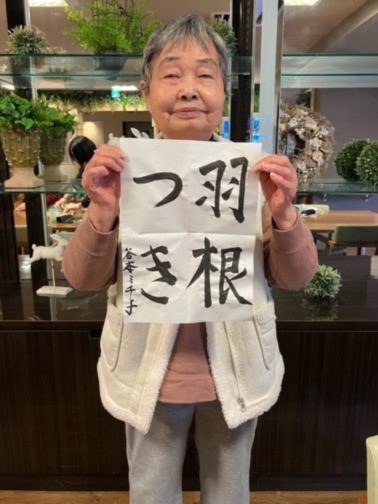 羽根
つき
谷奇ミチ子